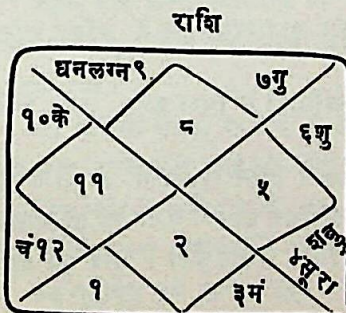 राशि
धनलग्न९. ७गु
१०के ८ ६शु
११ ५
चं१२ २ ४सूरा
१ ३मं